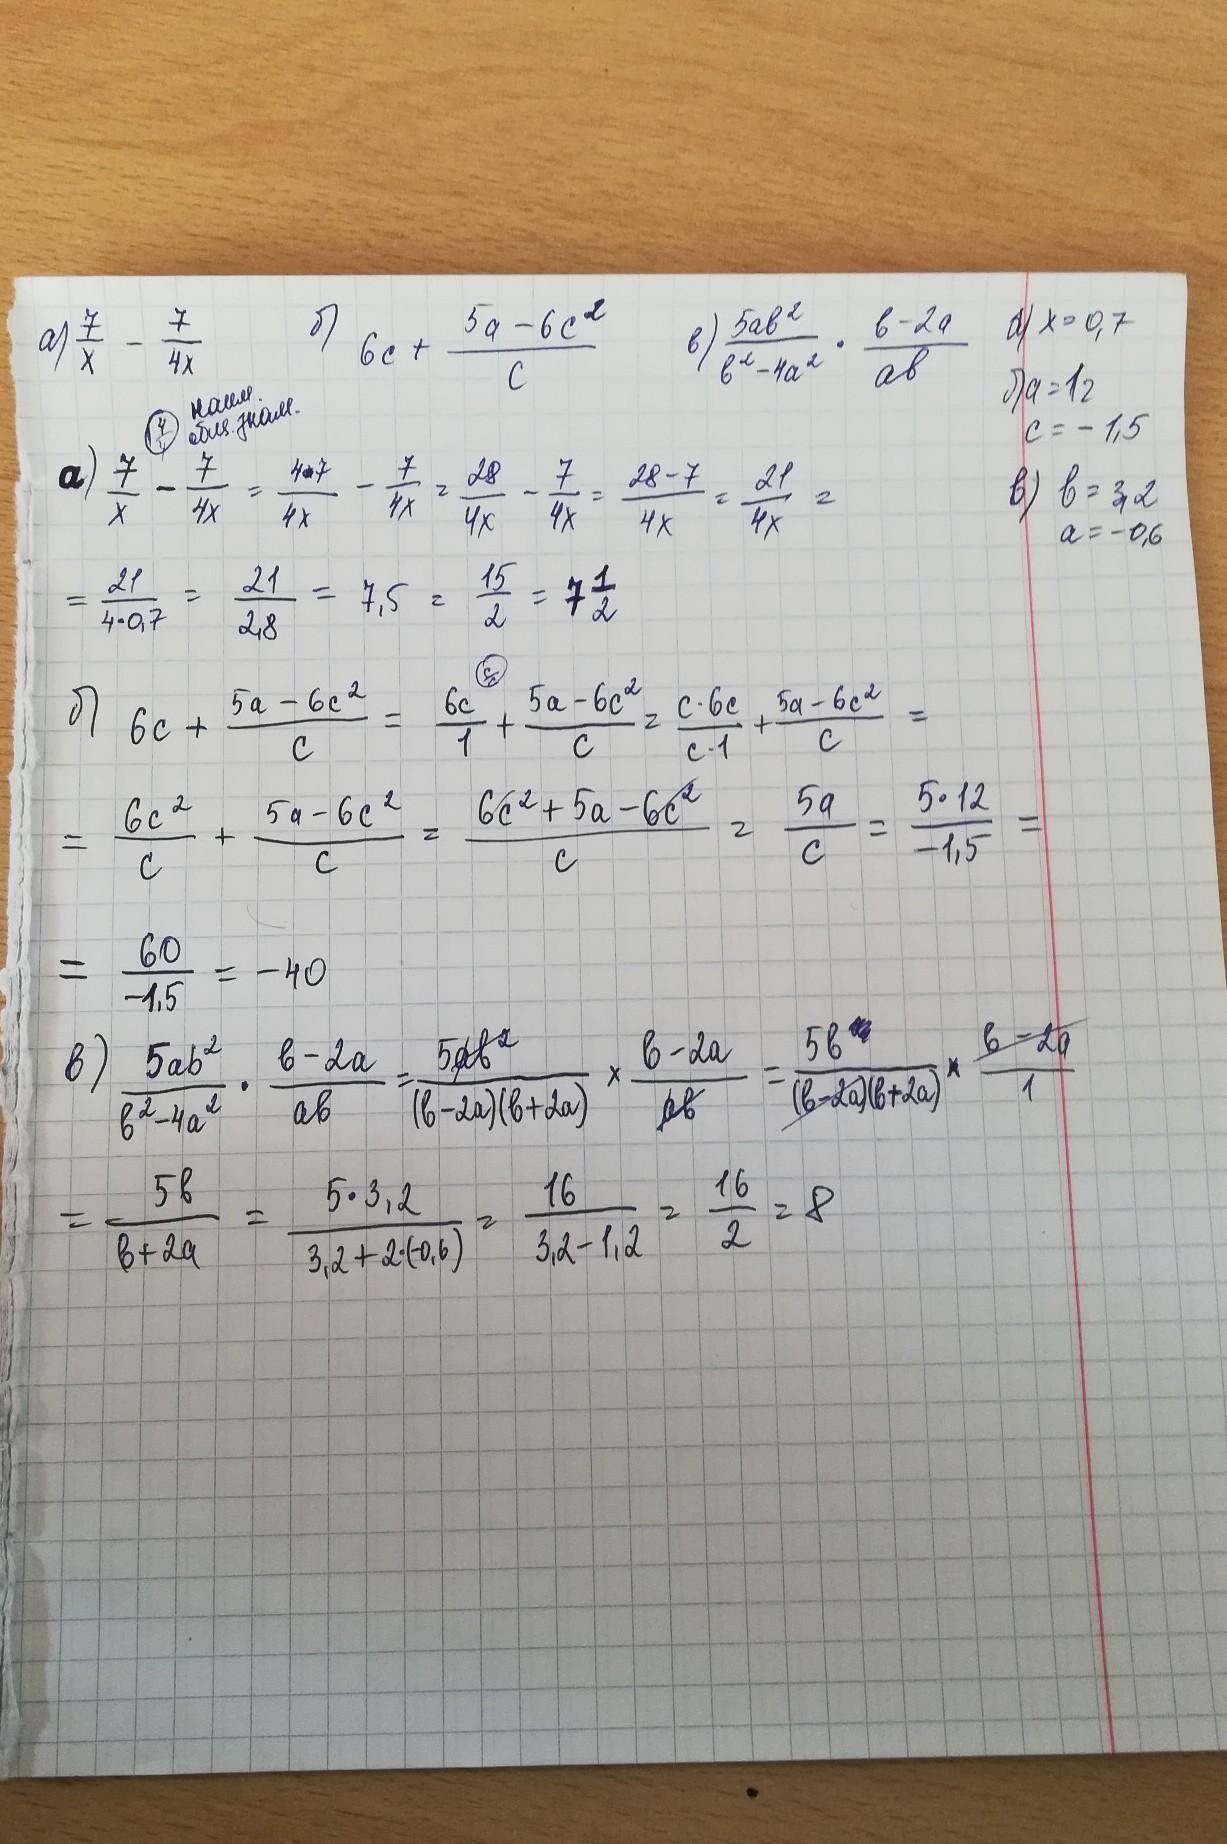 а) 7/x - 7/4x б) 6c + (5a - 6c²)/c в) 5ab²/(b² - 4a²) · (b - 2a)/ab а) x = 0,7
б) a = 12
c = -1,5
в) b = 3,2
a = -0,6
4/4 наим. общ. знам.
а) 7/x - 7/4x = 4·7/4x - 7/4x = 28/4x - 7/4x = (28 - 7)/4x = 21/4x =
= 21/(4·0,7) = 21/2,8 = 7,5 = 15/2 = 7 1/2
c/c
б) 6c + (5a - 6c²)/c = 6c/1 + (5a - 6c²)/c = (c·6c)/(c·1) + (5a - 6c²)/c =
= 6c²/c + (5a - 6c²)/c = (6c² + 5a - 6c²)/c = 5a/c = (5·12)/(-1,5) =
= 60/(-1,5) = -40
в) 5ab²/(b² - 4a²) · (b - 2a)/ab = 5ab²/((b - 2a)(b + 2a)) × (b - 2a)/ab = 5b/((b - 2a)(b + 2a)) × (b - 2a)/1
= 5b/(b + 2a) = (5·3,2)/(3,2 + 2·(-0,6)) = 16/(3,2 - 1,2) = 16/2 = 8